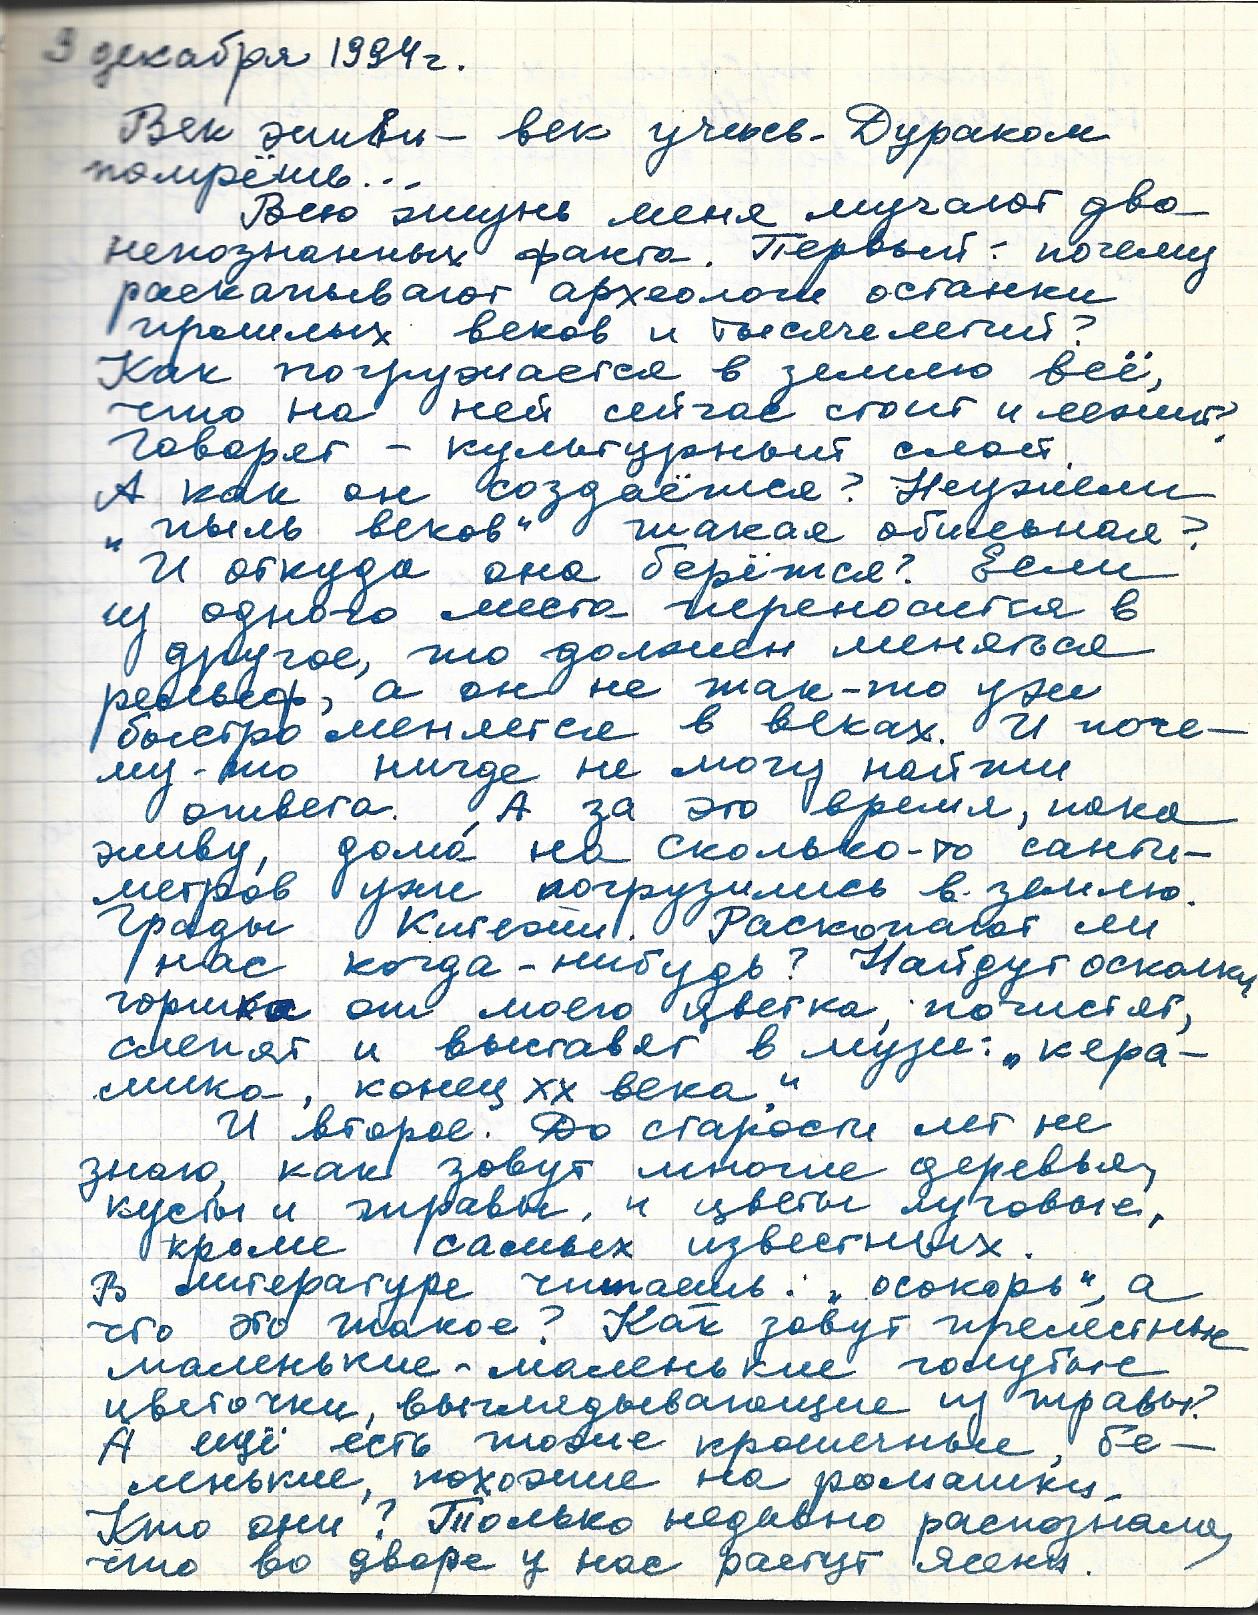 9 декабря 1994г.
Век живи – век учись. Дураком
помрёшь...
Всю жизнь меня мучают два
непознанных факта. Первый: почему
раскапывают археологи останки
прошлых веков и тысячелетий?
Как погружается в землю всё,
что на ней сейчас стоит и лежит?
Говорят – культурный слой.
А как он создаётся? Неужели
„пыль веков“ такая обильная?
И откуда она берётся? Если
из одного места переносится в
другое, то должен меняться
рельеф, а он не так-то уж
быстро меняется в веках. И поче-
му-то нигде не могу найти
ответа. А за это время, пока
живу, дома́ на сколько-то санти-
метров уже погрузились в землю.
Грады Китежи. Раскопают ли
нас когда-нибудь? Найдут осколки
горшка от моего цветка, почистят,
слепят и выставят в музее: „кера-
мика, конец XX века“
И второе. До старости лет не
знаю, как зовут многие деревья,
кусты и травы, и цветы луговые,
кроме самых известных.
В литературе читаешь: „осокорь“, а
что это такое? Как зовут прелестные
маленькие-маленькие голубые
цветочки, выглядывающие из травы?
А ещё есть тоже крошечные, бе-
ленькие, похожие на ромашки.
Кто они? Только недавно распознала,
что во дворе у нас растут ясени.